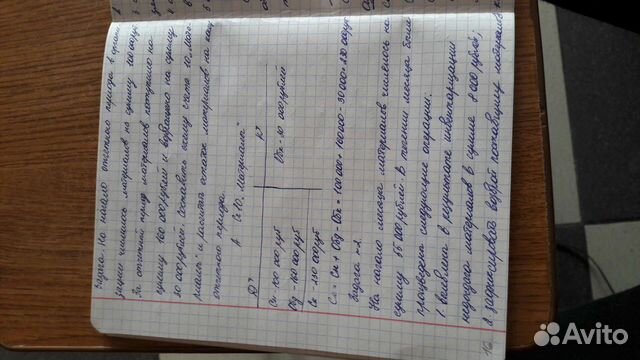 Задача. На начало отчетного периода в организации
числились материалы на сумму 100 000 руб.
За отчетный период материалов поступило на
сумму 160 000 рублей и израсходовано на сумму
30 000 рублей. Составить схему счета 10 "Мате-
риалы" и рассчитать остаток материалов на конец
отчетного периода.
А Сч 10 "Материалы"
Д? К?
Сн - 100 000 руб
Обд - 160 000 руб Обк = 30 000 рублей
Ск - 230 000 руб
Ск = Сн + Обд - Обк = 100 000 + 160 000 - 30 000 = 230 000 руб
Задача
На начало месяца материалов числилось на
сумму 55 000 рублей. В течении месяца были
произведены следующие операции:
1. Выявлена в результате инвентаризации
недостача материалов в сумме 8 000 рублей;
2. возврат поставщику материалов
Avito